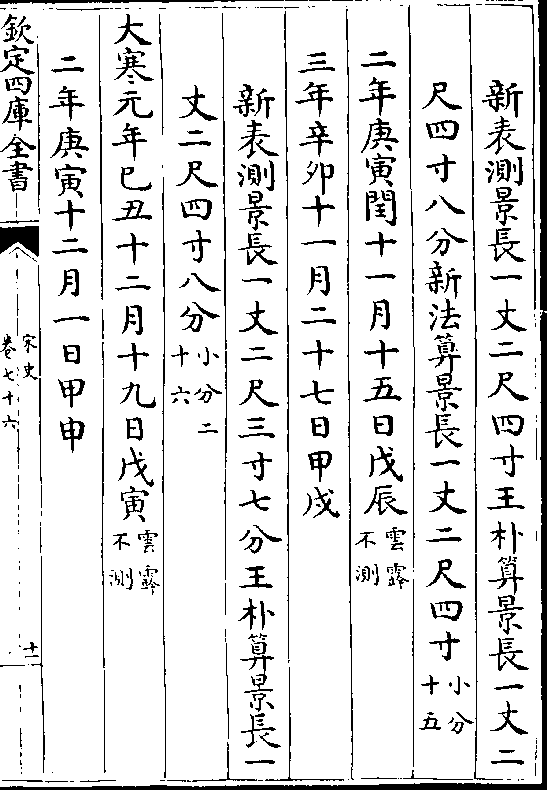 新表測景長一丈二尺四寸王朴算景長一丈二
尺四寸八分新法算景長一丈二尺四寸小分十五
二年庚寅閏十一月十五日戊辰雲霧不測
三年辛卯十一月二十七日甲戌
新表測景長一丈二尺三寸七分王朴算景長一
丈二尺四寸八分小分二十六
大寒元年巳丑十二月十九日戊寅雲霧不測
二年庚寅十二月一日甲申
欽定四庫全書
宋史
卷七十六
十一